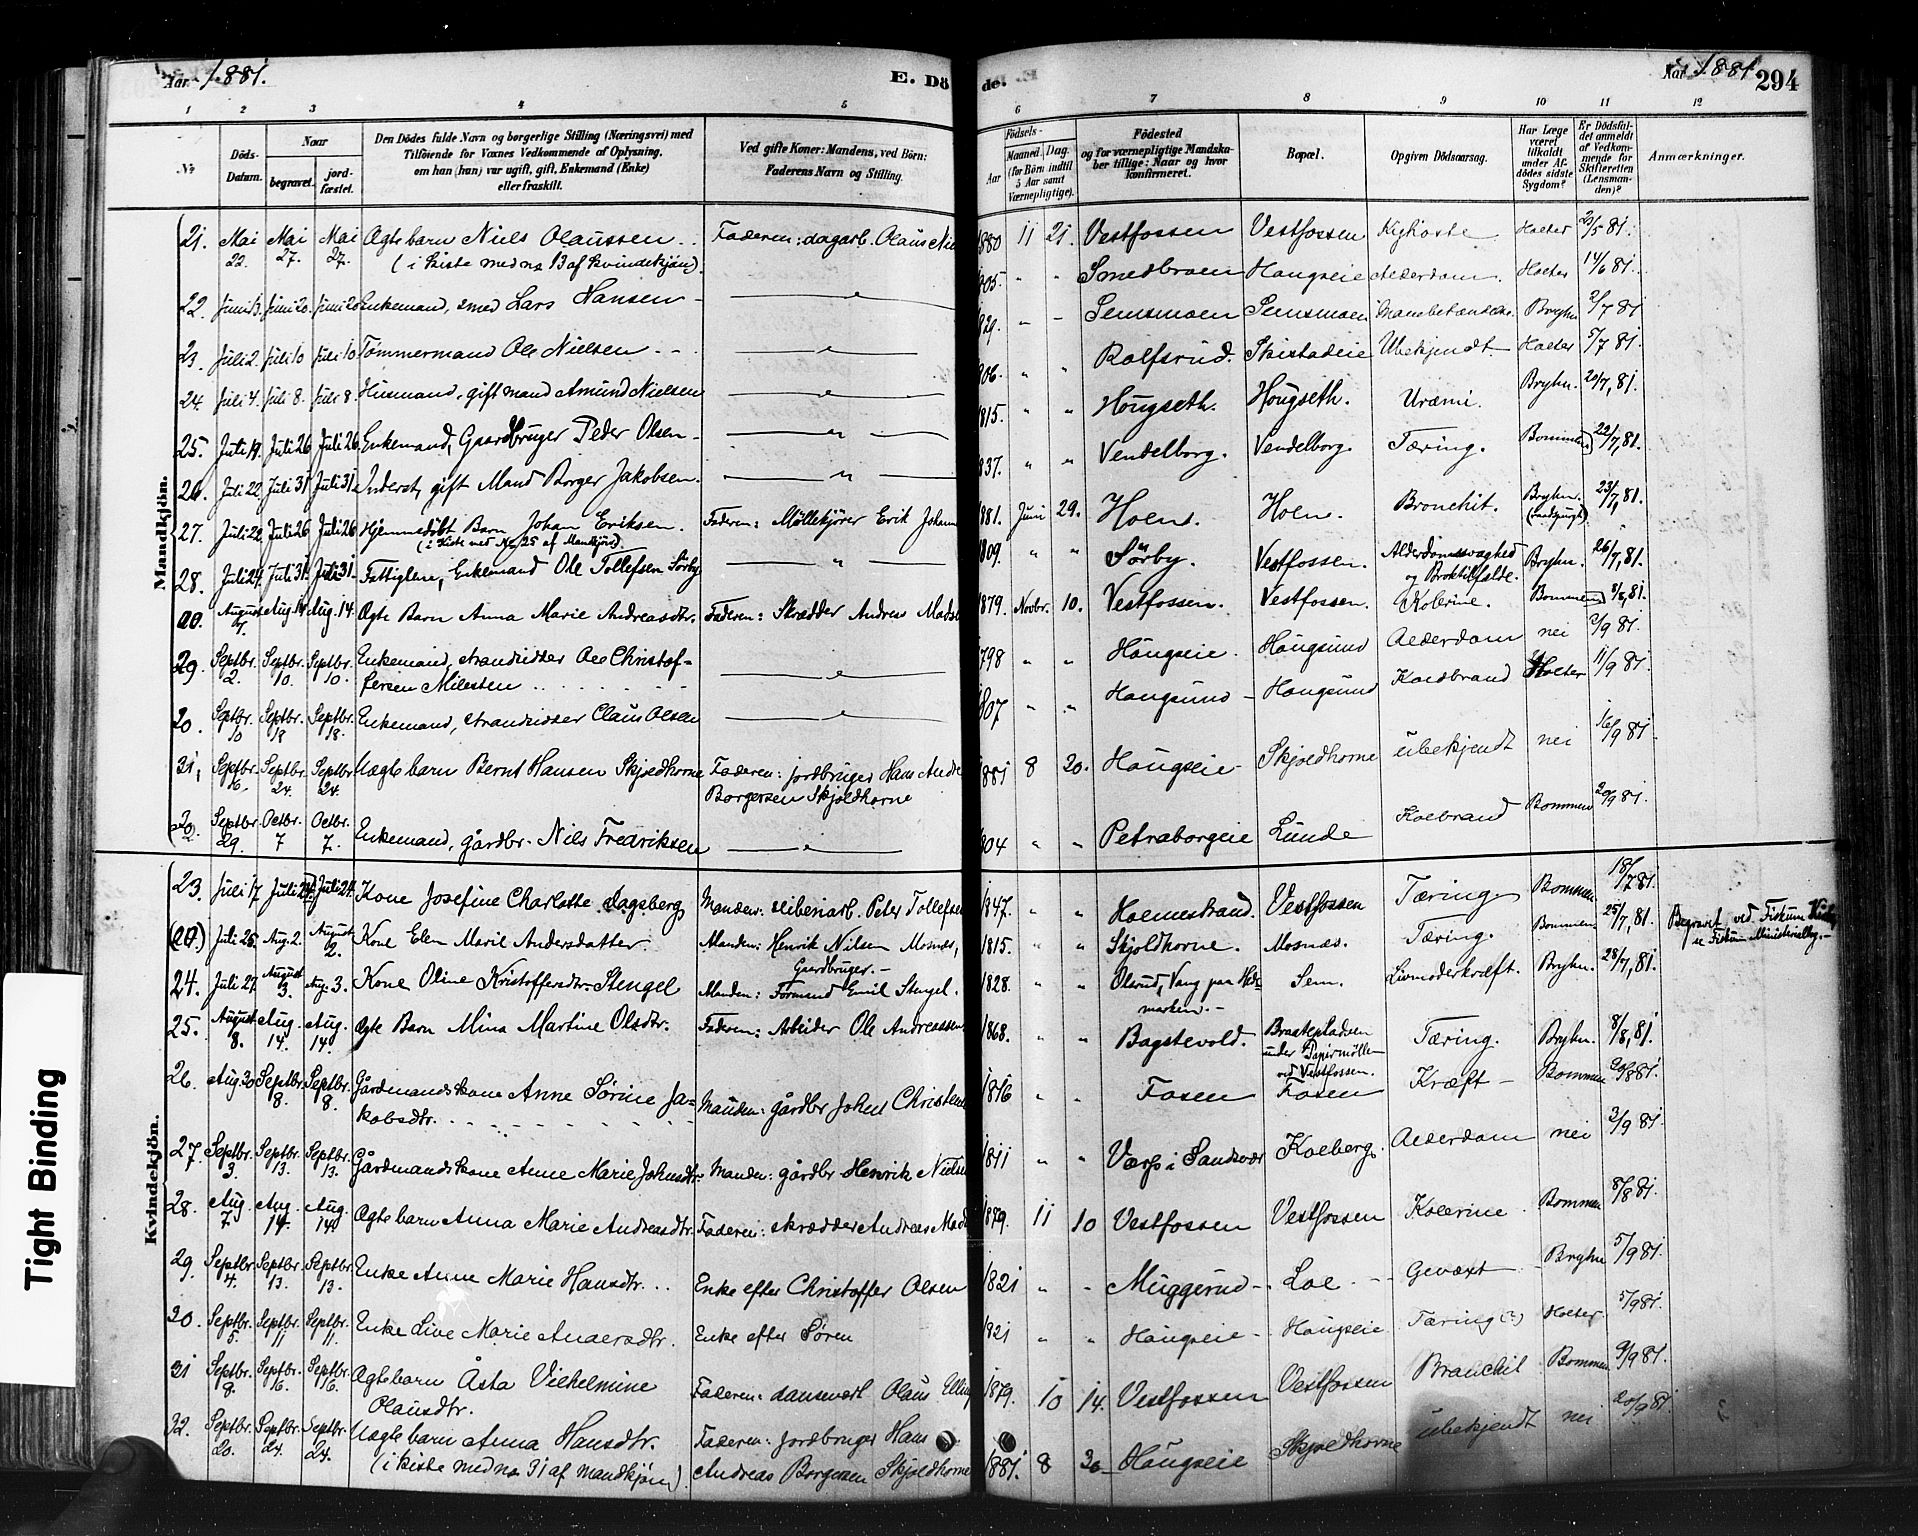 Aar 1881. E. Dö
de. Aar 1881 294
1 2 3 4 5 6 7 8 9 10 11 12
No. Döds-Datum. Naar begravet. jordfæstet. Den Dödes fulde Navn og borgerlige Stilling (Næringsvei) med Tilföiende for Voxnes Vedkommende af Oplysning, om han (hun) var ugift, gift, Enkemand (Enke) eller fraskilt. Ved gifte Koner: Mandens, ved Börn: Faderens Navn og Stilling. Födsels- Aar Maaned Dag. (for Börn indtil 5 Aar samt Værnepligtige). Födested og for værnepligtige Mandskaber tillige: Naar og hvor Konfirmeret. Bopæl. Opgiven Dödsaarsag. Har Læge været tilkaldt under Afdödes sidste Sygdom? Er Dödsfaldet anmeldt af Vedkommende for Skifteretten (Lensmanden)? Anmærkninger.
Mandkjön.
21. Mai 22. Mai 27. Mai 27. Ægte barn Niels Olaussen (i kiste med no 13 af kvindekjön). Faderen: dagarb. Olaus 1880 11 21. Vestfossen Vestfossen Kighoste Holter 2/5 81.
22. Juni 13. Juni 20. Juni 20 Enkemand, smed Lars Hansen 805. " " Smedbraen Haugseie Alderdom. Holter 14/6 81.
23. Juli 2. Juli 10 Juli 10 Tömmermand Ole Nielsen 829. Semsmoen Semsmoen Bryhn 2/7 81
24. Juli 4. Juli 8. Juli 8. Husmand, gift mand Amund Nielsen 806. " " Rolfsrud. Ubekjendt. Holter 5/7 81.
25. Juli 19. Juli 26 Juli 26. Enkemand, Gaardbruger Peder Olsen 1815. " " Hougseth. Hougseth. Uræmi. Bryhn. 20/7, 81.
26. Juli 22. Juli 31 Juli 31. Inderst, gift Mand Borger Jakobsen. 837. " " Vendelborg. Vendelborg. Tæring. Bommen 22/7, 81.
27. Juli 22. Juli 26 Juli 26 Hjemmedöbt Barn Johan Eriksen. (i Kiste med No 25 af Mandkjön) Faderen: Möllekjörer Erik Johann 1881. Juni 29. Holm. Bronchit. Bryhn. 23/7, 81.
28. Juli 24. Juli 31. Juli 31. Fattiglem, Enkemand Ole Tollefsen Sörby 1809. " " Sörby. Vestfossen. Alderdomssvaghed og Broktilfælde. Bryhn. 26/7, 81.
00. August 7. Aug 14. Aug. 14. Ægte Barn Anna Marie Andreasdtr. Faderen: Skrædder Andreas Mads 1879. Novbr. 10. Vestfossen. Vestfossen. Kolerine. Bommen 8/8, 81.
29. Septbr. 2. Septbr. 10. Septbr. 10. Enkemand, strandsidder Ole Christoffersen Milesten 1798 " " Haugseie. Haugsund Alderdom nei 2/9 81.
Septbr. 10 Septbr. 18 Septbr. 18. Enkemand, strandsidder Claus Olsen 1807 " " Haugsund Haugsund Koldbrand Holter 11/9 81.
31, Septbr. 16. Septbr. 24. Septbr. 24 Uægte barn Bernt Hansen Skjoldhorne Faderen: jordbruger Hans Andr Borgersen Skjoldhorne 1881 8 20. Haugseie Skjoldhorne ubekjendt nei 16/9 81.
Septbr. 29. Octbr. 7 Octbr. 7. Enkemand, gårdbr. Nils Fredriksen 804 " Petraborgeie Lunde Bommen 81.
Kvindekjön.
23. Juli 17 Juli 24. Juli 24. Kone Josefine Charlotte Dagsberg Manden: sliberiarb. Peter Tollefse 1847. " " Holmestrand. Vestfossen Tæring Bommen 18/7 81.
Juli 25. Aug. 2. August 2. Kone Elen Marie Andersdatter Manden: Henrik Nilsen Mosnæs, Gaardbruger. 1815. " " Skjoldhorne. Mosnæs. Tæring. Bommen 25/7, 81. Begravet ved Fiskum Kirke, se Fiskum Ministerialbog.
24. Juli 27. August 3. Aug. 3. Kone Oline Kristoffersdtr. Stengel Manden: Formand Emil Stengel. 1828. " " Olsrud, Vang paa Hedemarken. Sem. Livmoderkræft. Bryhn. 28/7, 81.
25. August 8. Aug. 14. Aug. 14. Ægte Barn Mina Martine Olsdtr. Faderen: Arbeider Ole Andreassen 1868. " " Bagstevold. Braatepladsen under Papirmölle ved Vestfossen. Tæring. Bryhn. 8/8, 81.
26. Aug. 30 Septbr. 8. Septbr. 8. Gårdmandskone Anne Sörine Jakobsdtr. Manden: gårdbr Johns Christens 1816 " " Fosen Fosen Kræft Bommen 81.
27. Septbr. 3. Septbr. 13. Septbr. 13. Gårdmandskone Anne Marie Johnsdtr. Manden: gårdbr Henrik Niels 1811 " " i Sandsvær Kolberg. Alderdom nei 3/9 81.
28. Aug. 7. Aug. 14. Aug. 14 Ægte barn Anna Marie Andreasdtr. Faderen: skrædder Andreas Mad 1879. 11 10 Vestfossen Vestfossen Kolerine Bommen 8/8 81.
29. Septbr. 4. Septbr. 13. Septbr. 13. Enke Anne Marie Hansdtr. Enke efter Christoffer Olsen 1821 " " Muggerud Loe Gevæxt Bryhn 5/9 81.
Septbr. 5. Septbr. 11 Septbr. 11. Enke Live Marie Enke efter Sören 1821 " " Haugseie Haugseie Tæring (?) Holter 5/9 81.
31 Septbr. 8. Septbr. 16. Septbr. 16. Ægte barn Åsta Vilhelmine Olausdtr. Faderen: Olaus 1879. 10 14. Vestfossen Vestfossen Bronchit Bommen 9/9 81.
32. Septbr. 20. Septbr. 24. Septbr. 24. Uægte barn Anna Hansdtr. (i kiste med no 31 af mandkjön). Faderen: jordbruger Hans Andreas Borgersen Skjoldhorne 1881. 8 20 Haugseie Skjoldhorne ubekjendt nei 20/9 81.
Tight Binding